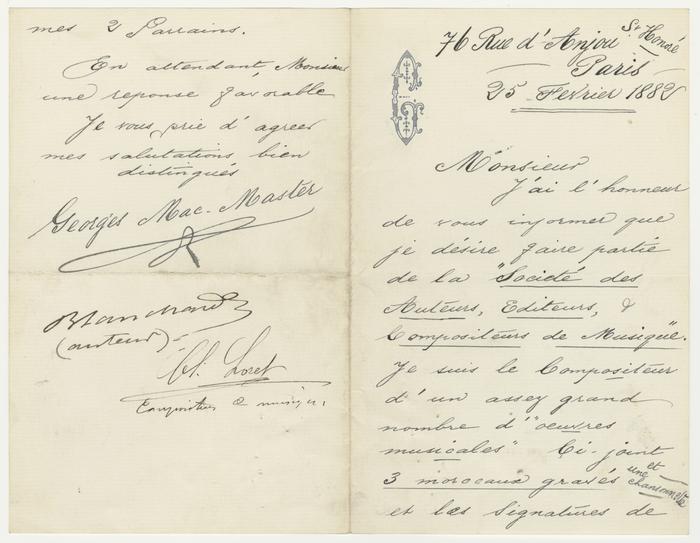 76 Rue d'Anjou St Honoré
Paris
25 Fevrier 1882
Monsieur
J'ai l'honneur
de vous informer que
je désire faire partie
de la "Societé des
Auteurs, Editeurs, &
Compositeurs de Musique".
Je suis le Compositeur
d'un assez grand
nombre d'"oeuvres
musicales" Ci-joint
3 morceaux gravés et une chansonnette
et les signatures de
mes 2 Parrains.
En attendant, Monsieur
une reponse favorable
Je vous prie d'agreer
mes salutations bien
distingués
Georges Mac-Master
Blanchard
(auteur)
Cl. Loret
Compositeur de musique.